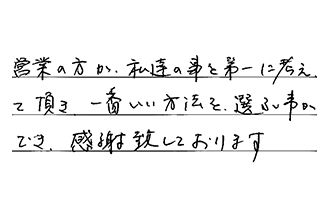 営業の方が、私達の事を第一に考え
て頂き、一番いい方法を、選ぶ事が
でき、感謝致しております